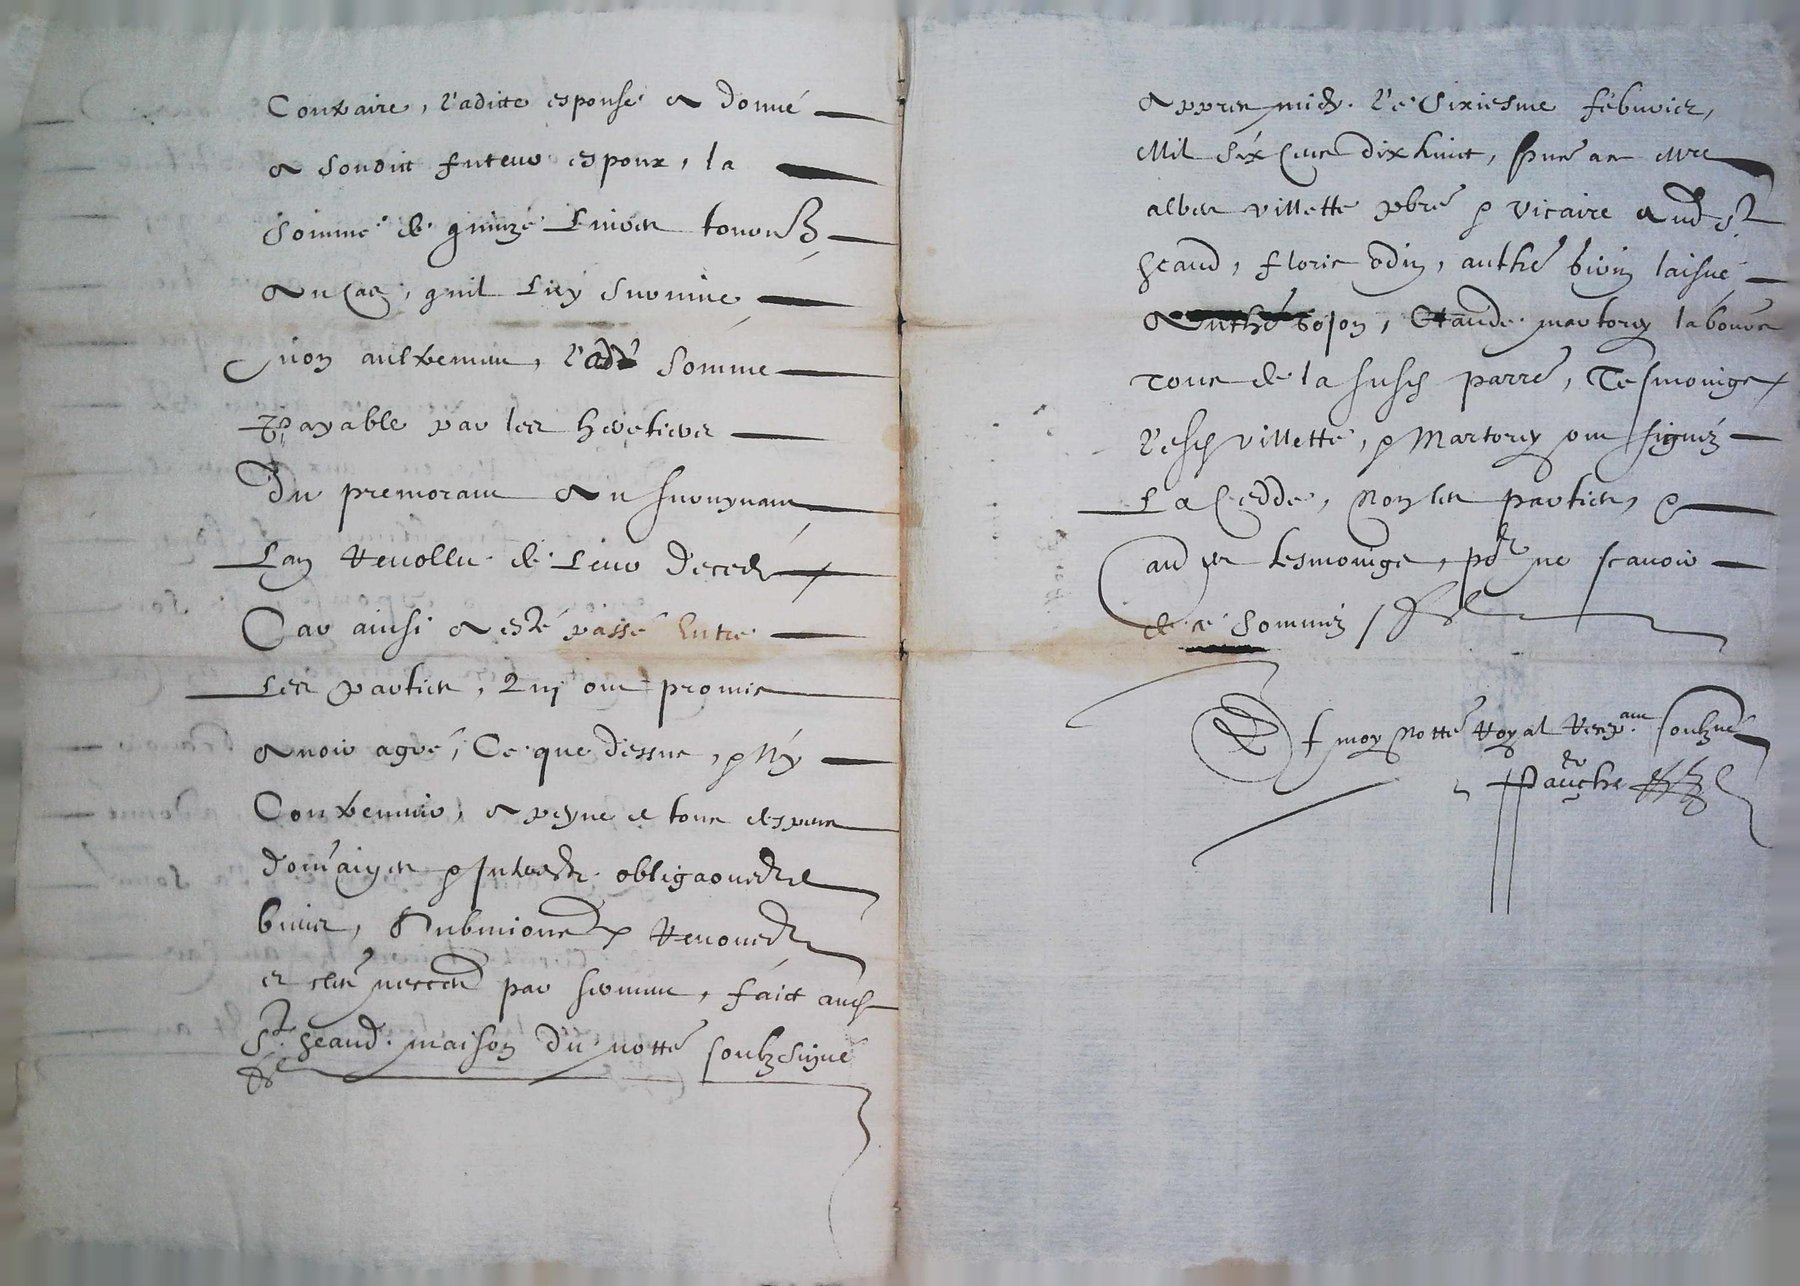 Contraire, l'adicte espouse a donné
a sondit futeur espoux, la
somme de quinze Livres tourn
au cas, quil Luy survive
& non aultrement, l'ad somme
Payable par les heretiers
Du premorant au survyvant
Lan revollu de Leur deced
Car ainsi a esté passé Entre
Les parties, Qui ont promis
avoir agré, Ce que dessus, & N'y
Contrevenir, a peyne de tous despens
dom'aiges & obliga
biens, submions renon
et par serment, faict aud
St heand maison du notte soubzsigné
appres midy le sixiesme febvrier,
Mil six cens dix huict, pnt a ce Mre
villette pbre & vicaire aud St
heand, floris odin, anthe laisné
anthe Claude martorey laboure
tous de la susd parre, Tesmoings
l'esd villette, & Martorey ont signéz
La Cedde, Non les parties, &
aultres tesmoings, pour ne scavoir
de ce sommez
Et moy Notte Royal soubzné
Pauche